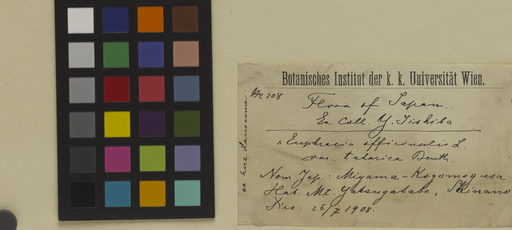 Botanisches Institut der k. k. Universität Wien.
№ 208
Flora of Japan
Ex Coll. Y. Tishiba
Euphrasia officinalis L.
var. tatarica Benth.
Nom Jap.: Miyama-Kogomegusa
Hab. Mt. Yatsugatake, Shinano
Dies: 26/7 1908.